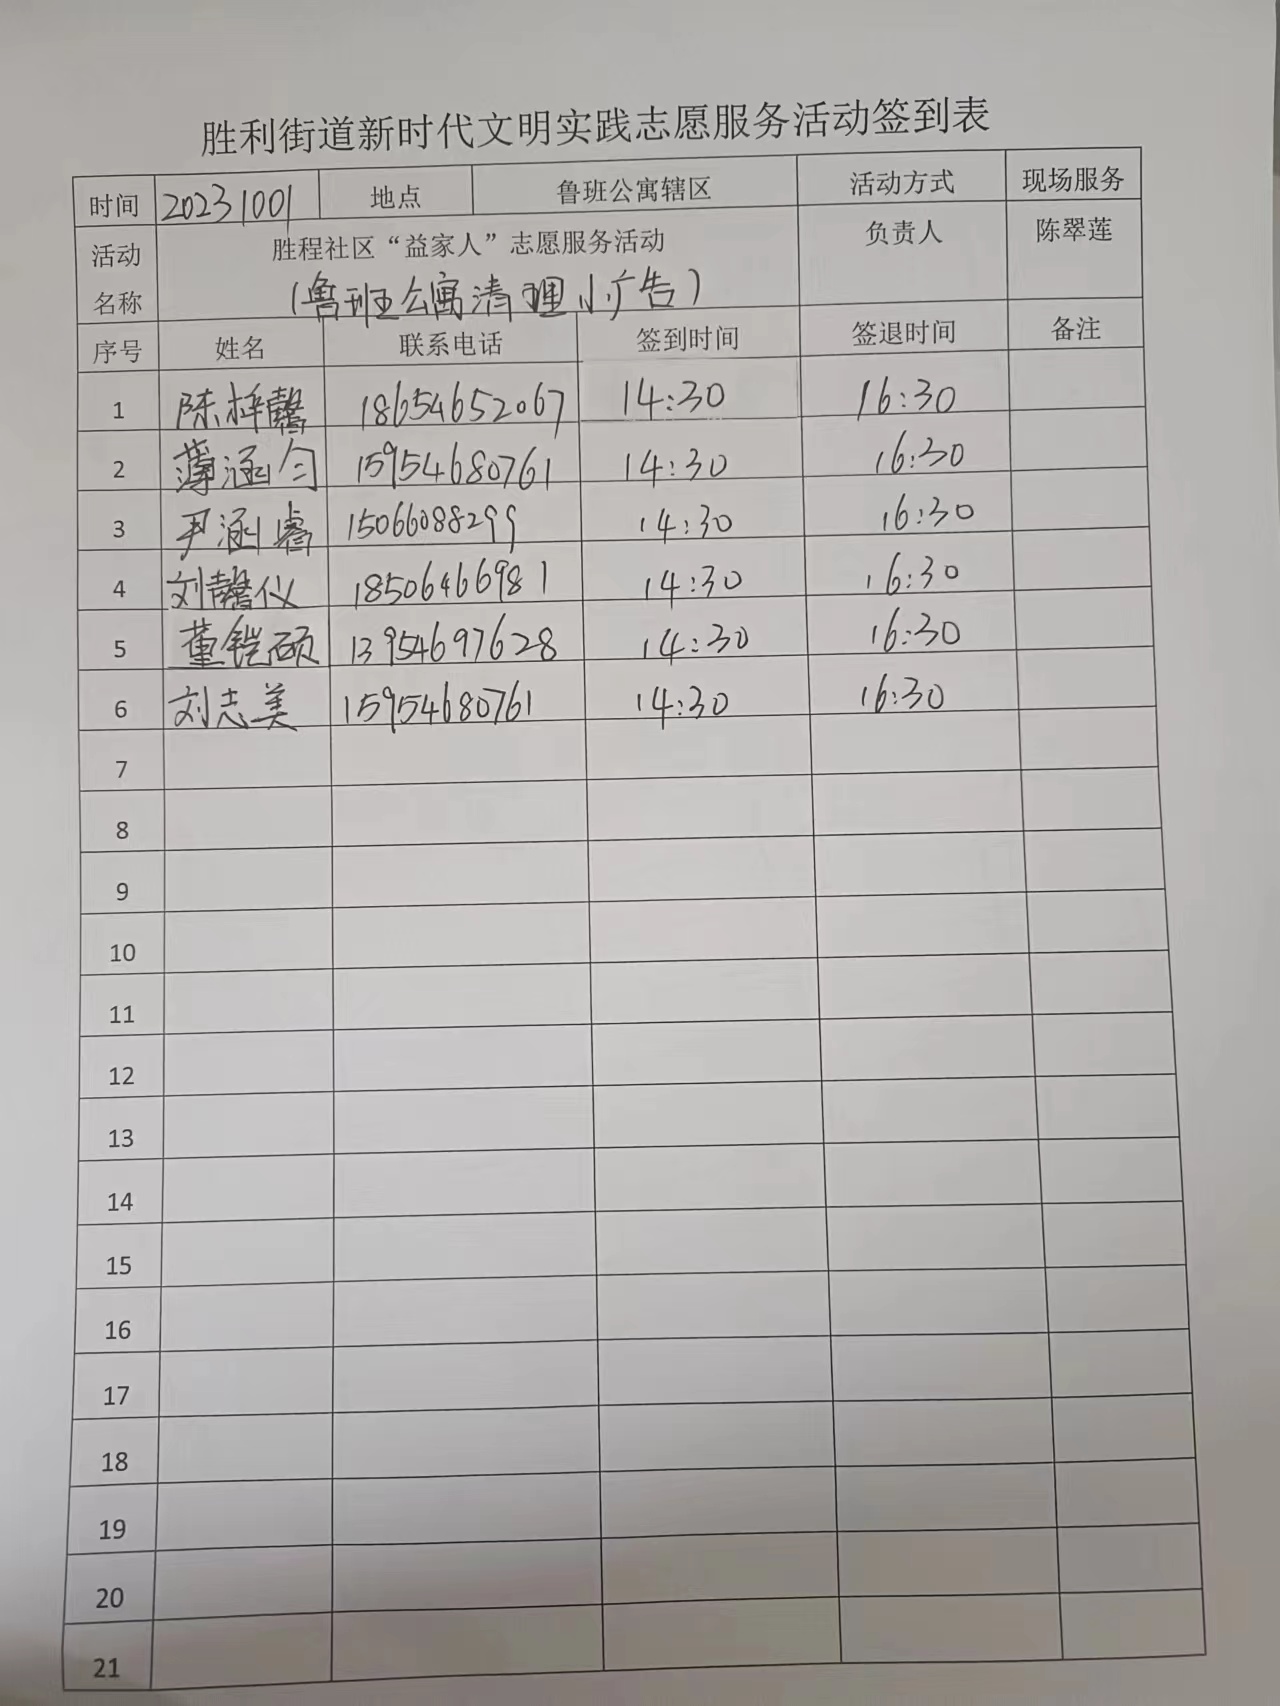 胜利街道新时代文明实践志愿服务活动签到表
时间 20231001 地点 鲁班公寓辖区 活动方式 现场服务
活动名称 胜程社区“益家人”志愿服务活动 负责人 陈翠莲
（鲁班公寓清理小广告）
序号 姓名 联系电话 签到时间 签退时间 备注
1 陈梓馨 18654652067 14:30 16:30
2 薄涵匀 15954680761 14:30 16:30
3 尹涵睿 15066088299 14:30 16:30
4 刘馨仪 18506466981 14:30 16:30
5 董铠硕 13954697628 14:30 16:30
6 刘志美 15954680761 14:30 16:30
7
8
9
10
11
12
13
14
15
16
17
18
19
20
21